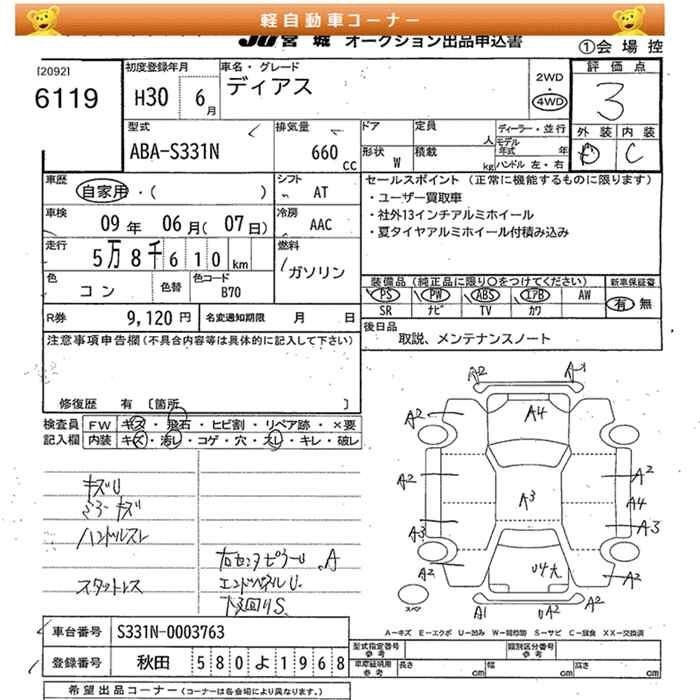 軽自動車コーナー
JU宮城 オークション出品申込書
①会場控
[2092]
6119
初度登録年月
H30 6月
車名・グレード
ディアス
2WD
・
4WD
評価点
3
外装 内装
D C
型式
ABA-S331N
排気量
660 CC
ドア 定員 人
形状 W 積載 kg
ディーラー・並行
モデル年式 年
ハンドル 左・右
車歴
自家用・( )
シフト
AT
車検
09年 06月(07日)
冷房
AAC
走行
5万8千610km
燃料
ガソリン
色
コン
色替
色コード
B70
R券 9,120円
名変通知期限 月 日
セールスポイント (正常に機能するものに限ります)
・ユーザー買取車
・社外13インチアルミホイール
・夏タイヤアルミホイール付積み込み
装備品(純正品に限り○をつけてください)
新車保証書
PS PW ABS エアB AW
SR ナビ TV カワ
有 無
後日品
取説、メンテナンスノート
注意事項申告欄(不具合内容等は具体的に記入して下さい)
修復歴 有 〔箇所 〕
検査員記入欄
FW キズ・飛石・ヒビ割・リペア跡・×要
内装 キズ・汚レ・コゲ・穴・スレ・キレ・破レ
キズU
ミラーキズ
ハンドルスレ
スタットレス
右センタピラー.A
エンドパネルU.
下回りS.
A2 A1
A2 A4
A2 A3 A2
A4
A3 A3
A2 U4大 A2
スペア
A1 UA2 A2
A-キズ E-エクボ U-凹み W-補修跡 S-サビ C-腐食 XX-交換済
車台番号 S331N-0003763
登録番号 秋田 580よ1968
型式指定番号 参考
類別区分番号 参考
車庫証明用 参考 長さ cm 幅 cm 高さ cm
希望出品コーナー(コーナーは各会場により異なります。)